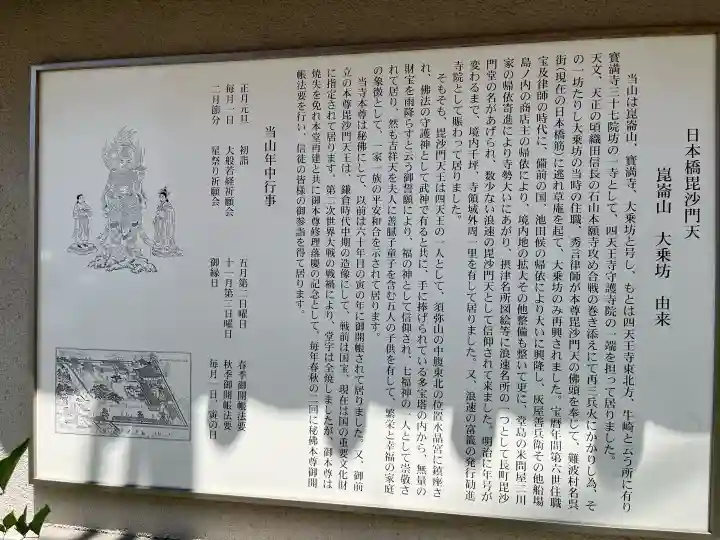 日本橋毘沙門天
崑崙山　大乗坊　由来
当山は崑崙山、寶満寺、大乗坊と号し、もとは四天王寺東北方、牛崎と云う所に有り
寶満寺三十七院坊の一寺として、四天王寺守護寺院の一端を担って居りました。
天文、天正の頃織田信長の石山本願寺攻め合戦の巻き添えにて再三兵火にかかりし為、そ
の一坊たりし大乗坊の当時の住職、秀言律師が本尊毘沙門天の佛頭を奉じて、難波村名呉
街（現在の日本橋筋）に逃れ草庵を起て、大乗坊のみ再興されました。宝暦年間第六世住職
宝及律師の時代に、備前の国、池田候の帰依により大いに興隆し、灰屋善兵衛その他船場
島ノ内の商店主の帰依により、境内地の拡大その他整備も整いて更に、堂島の米問屋三川
家の帰依寄進により寺勢大いにあがり、摂津名所図絵等に浪速名所の一つとして長町毘沙
門堂の名があげられ、数少ない浪速の毘沙門天として信仰されて来ました。明治に年号が
変わるまで、境内千坪、寺領城外周一里を有して居りました。又、浪速の富籤の発行勧進
寺院として賑わって居りました。
そもそも、毘沙門天王は四天王の一人として、須弥山の中腹東北の位置水晶宮に鎮座さ
れ、佛法の守護神として武神で有ると共に、手に捧げられている多宝塔の内から、無量の
財宝を雨降らすと云う御誓願により、福の神として信仰され、七福神の一人として崇敬さ
れて居り、然も吉祥天を夫人に善膩子童子を含む五人の子供を有して、繁栄と幸福の家庭
の象徴として、一家一族の平安和合を示されて居ります。
当寺本尊は秘佛にして、以前は六十年目の寅の年に御開帳されて居りました。又、御前
立の本尊毘沙門天王は、鎌倉時代中期の造像にして、戦前は国宝、現在は国の重要文化財
に指定されて居ります。第二次世界大戦の戦禍により、堂宇は全焼しましたが、御本尊は
焼失を免れ本堂再建と共に御本尊修理落慶の記念として、毎年春秋の二回に秘佛本尊御開
帳法要を行い、信徒の皆様の御参詣を得て居ります。
当山年中行事
正月元旦　初詣
毎月一日　大般若経祈願会
二月節分　星祭り祈願会
五月第二日曜日　春季御開帳法要
十一月第三日曜日　秋季御開帳法要
御縁日　毎月一日、寅の日